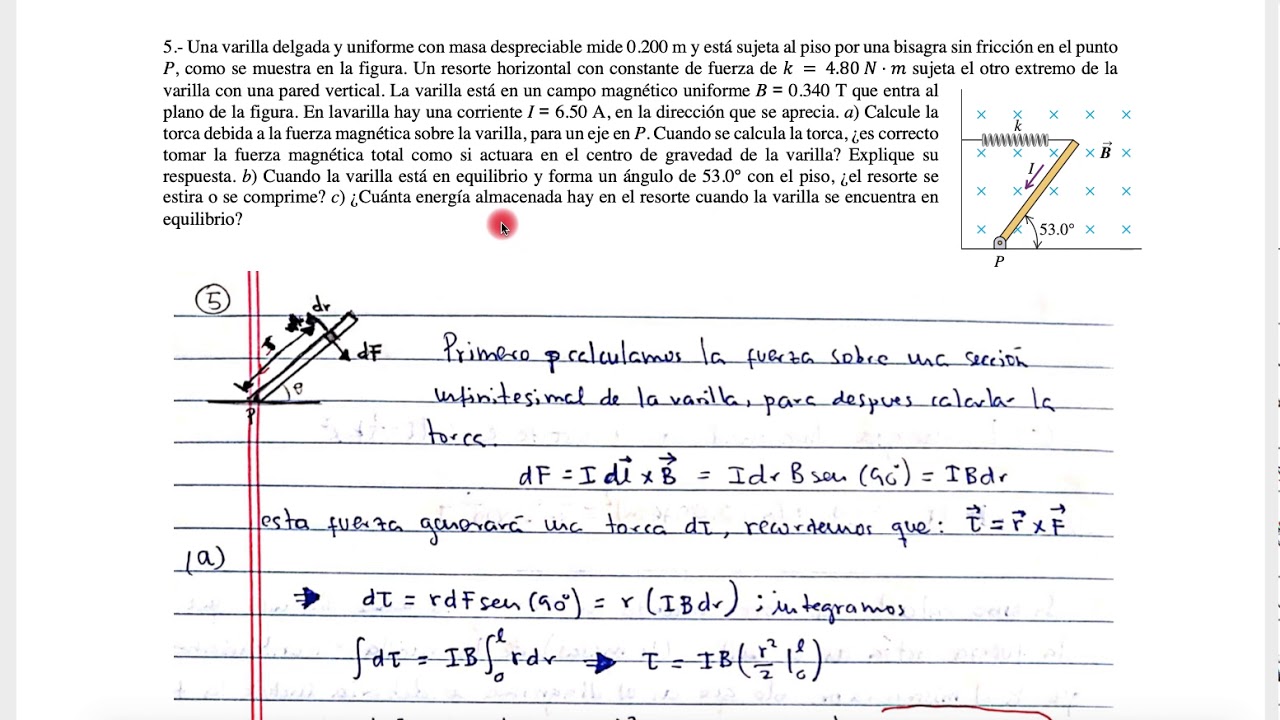 5.- Una varilla delgada y uniforme con masa despreciable mide 0.200 m y está sujeta al piso por una bisagra sin fricción en el punto
P, como se muestra en la figura. Un resorte horizontal con constante de fuerza de k = 4.80 N · m sujeta el otro extremo de la
varilla con una pared vertical. La varilla está en un campo magnético uniforme B = 0.340 T que entra al
plano de la figura. En lavarilla hay una corriente I = 6.50 A, en la dirección que se aprecia. a) Calcule la
torca debida a la fuerza magnética sobre la varilla, para un eje en P. Cuando se calcula la torca, ¿es correcto
tomar la fuerza magnética total como si actuara en el centro de gravedad de la varilla? Explique su
respuesta. b) Cuando la varilla está en equilibrio y forma un ángulo de 53.0° con el piso, ¿el resorte se
estira o se comprime? c) ¿Cuánta energía almacenada hay en el resorte cuando la varilla se encuentra en
equilibrio?
k
B⃗
I
53.0°
P
5
dr
r
dF
θ
P
Primero calculamos la fuerza sobre una sección
infinitesimal de la varilla, para despues calcular la
torca.
dF = I dl⃗ x B⃗ = Idr B sen (90°) = IBdr
esta fuerza generará una torca dτ, recordemos que: τ⃗ = r⃗ x F⃗
(a)
⇒ dτ = rdFsen(90°) = r (IBdr) ; integramos
∫dτ = IB∫₀ˡ rdr ⇒ τ = IB(r²/2 |₀ˡ)